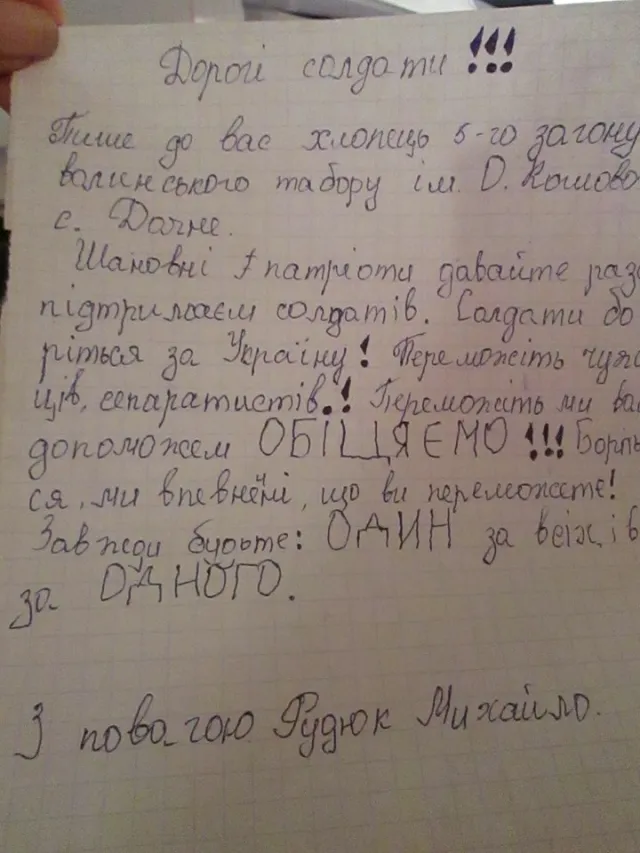 Дорогі солдати !!!
Пише до вас хлопець 5-го загону
волинського табору ім. О. Кошово
с. Дачне.
Шановні патріоти давайте раз
підтримаєм солдатів. Солдати бо
ріться за Україну! Переможіть чуж
ців, сепаратистів.! Переможіть ми ва
допоможем ОБІЦЯЄМО !!! Боріть
ся, ми впевнені, що ви переможете!
Завжди будьте: ОДИН за всіх, і в
за ОДНОГО.
З повагою Рудюк Михайло.